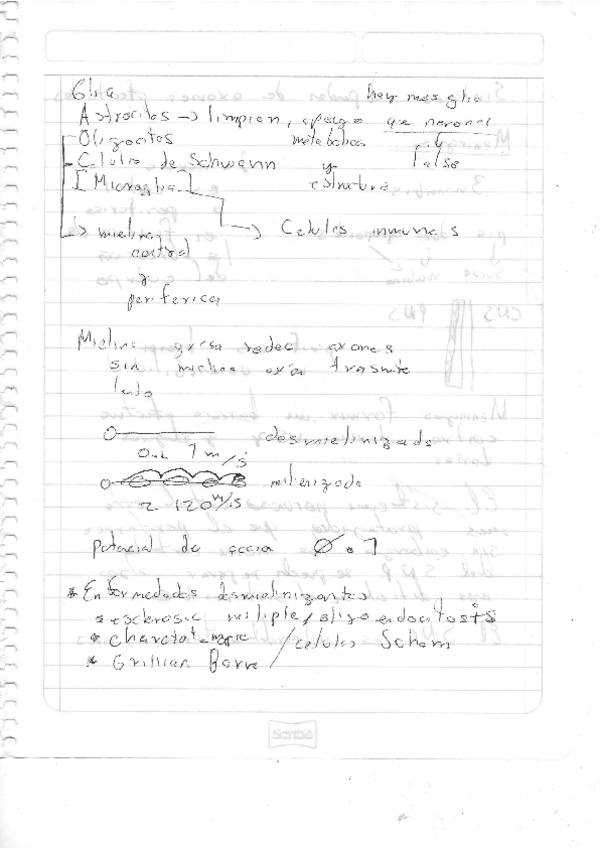 Glia hay mas glia
Astrocitos → limpian, apoyo que neronas
Oligocitos metabolica ↓
Celulas de Schwann y False
[Microglia] estructura
→ mielina → Celulas inmunes
central
y
periferica
Mielina grasa rodea axones
sin mielina axón trasmite
lento
desmielinizada
1 m/s
milenizada
2 120 m/s
potencial de accion Ø • 1
* Enformedades desmielinizantes
* esclerosis miltiple / oligoendocitosts
* charcot / celulas Scham
* Grillian Barre /
Scribe